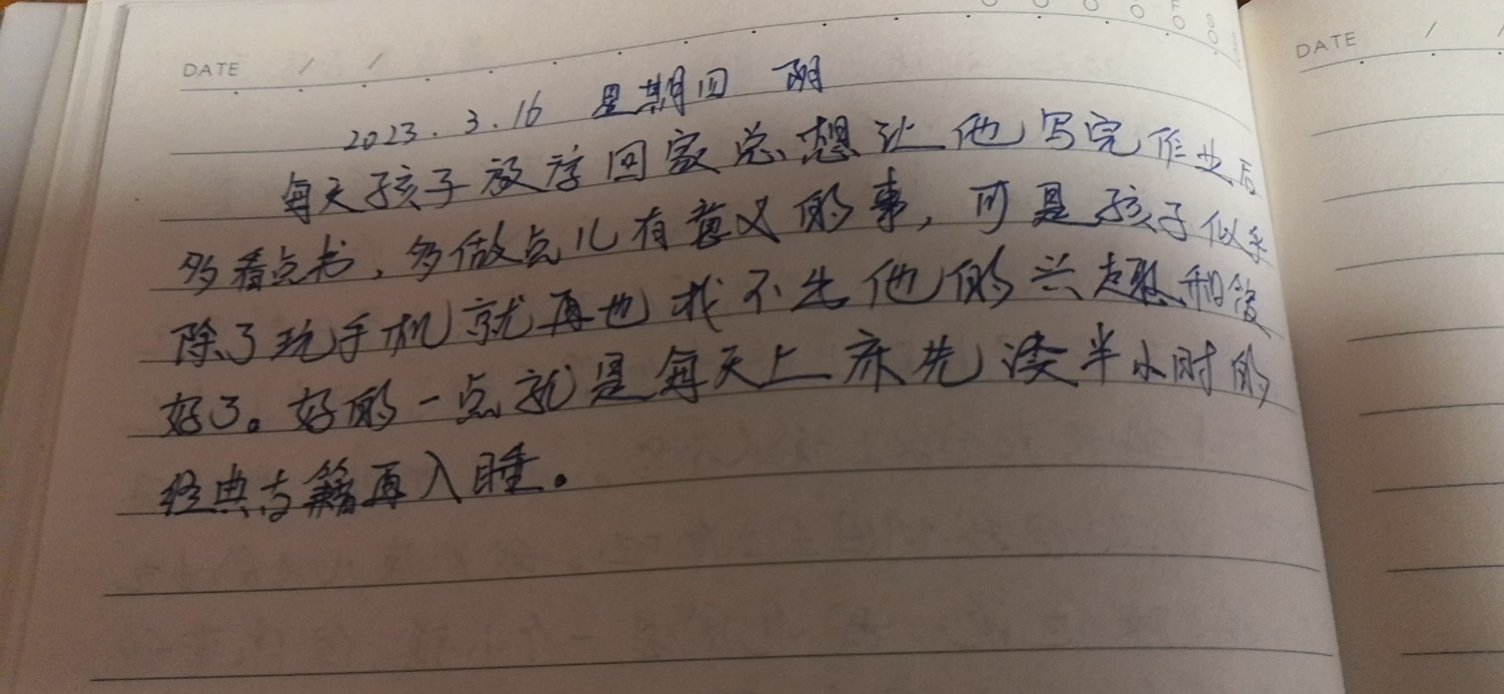 DATE / /
DATE / /
2023.3.16 星期四 阴
每天孩子放学回家总想让他写完作业后
多看点书，多做点儿有意义的事，可是孩子似乎
除了玩手机就再也找不出他的兴趣和爱
好了。好的一点就是每天上床先读半小时的
经典古籍再入睡。